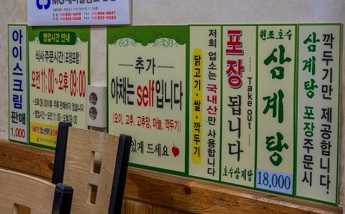 아이스크림 판매
1,000
영업시간 안내
식사·주문시간(포장포함)
오전 11:00~오후 08:00
추가
야채는 self입니다
(오이, 고추, 고추장, 마늘, 깍두기)
있게 드세요
저희 업소는 국내산만 사용합니다
닭고기·쌀·깍두기
포장 됩니다
Take out
호수삼계탕
원조호수
삼계탕
18,000
깍두기만 제공합니다.
삼계탕 포장주문시